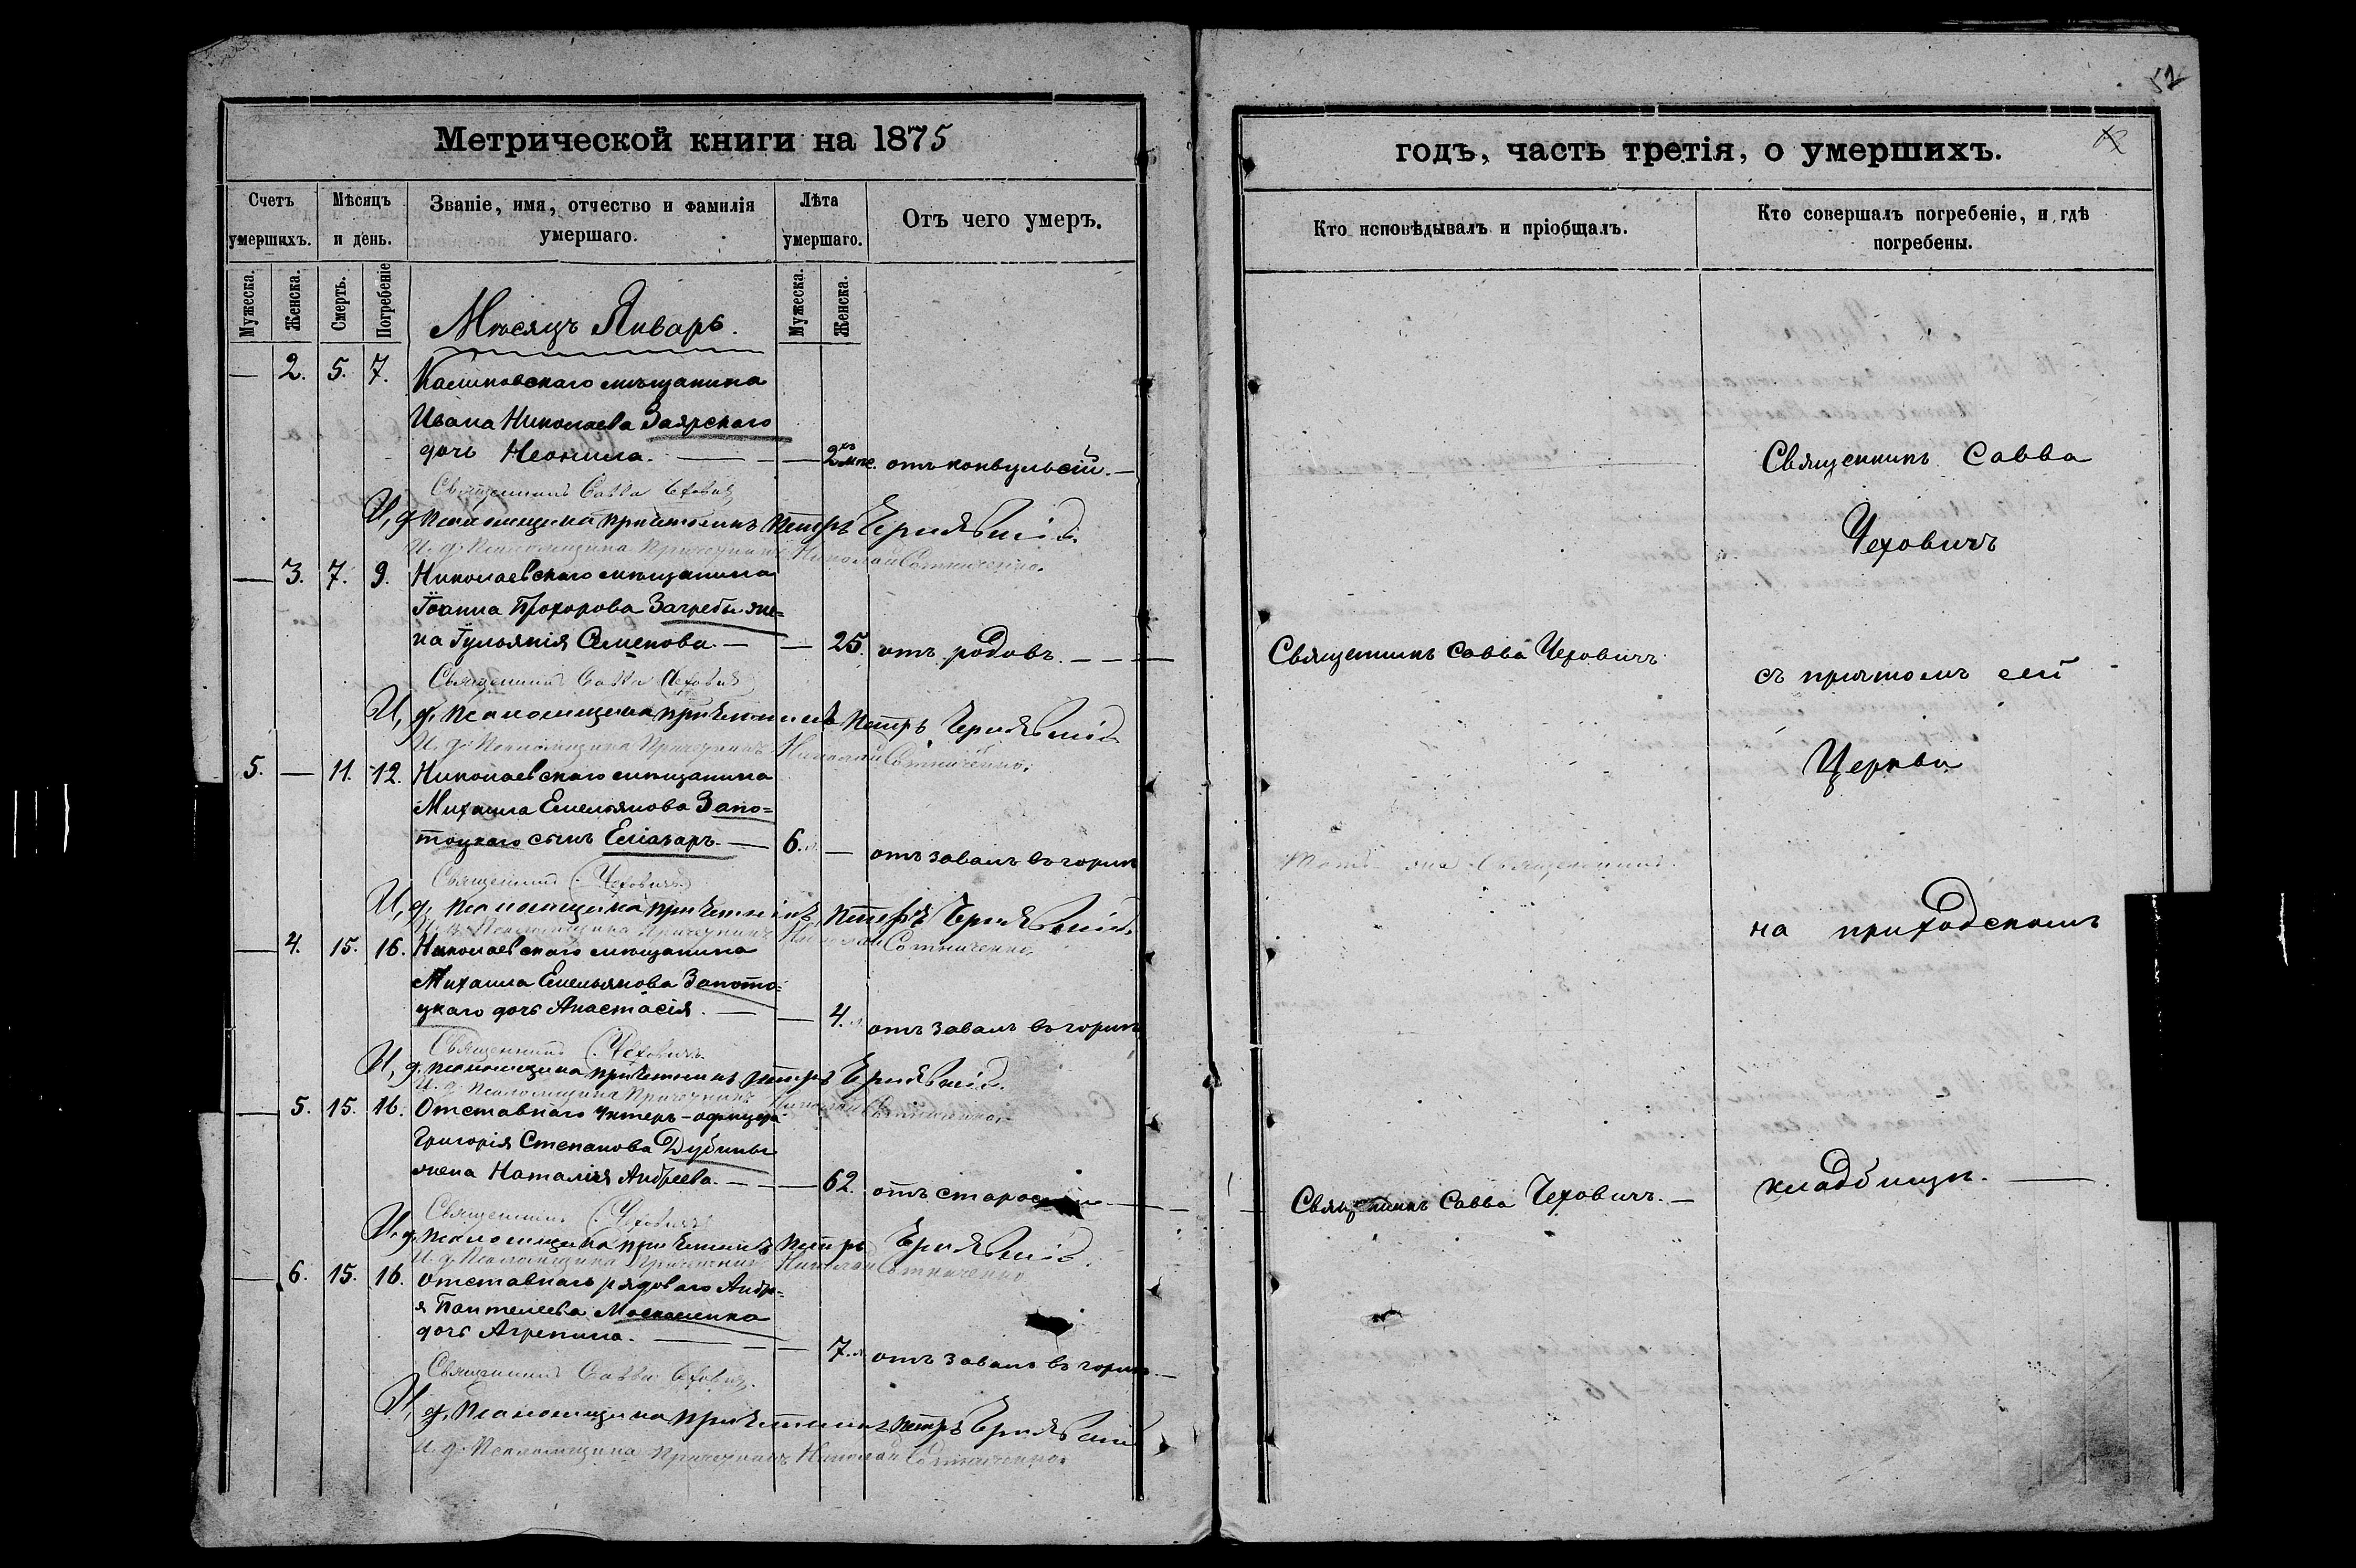 52
Метрической книги на 1875
годъ, часть третія, о умершихъ.
Счетъ умершихъ.
Мѣсяцъ и день.
Званіе, имя, отчество и фамилія умершаго.
Лѣта умершаго.
Отъ чего умеръ.
Кто исповѣдывалъ и пріобщалъ.
Кто совершалъ погребеніе, и гдѣ погребены.
Мужеска.
Женска.
Смерть.
Погребеніе
Мужеска.
Женска.
Мѣсяцъ Январь.
— 2. 5. 7.
мѣщанина
Ивана Николаева Заярскаго
дочь Неонила. — — 2хъ мѣс. отъ конвульсій. —
Священникъ Савва Чеховичъ
И, д. Псаломщика причетникъ Петръ
И. д. Псаломщика Причетникъ Николай Сотниченко.
— 3. 7. 9. Николаевскаго мѣщанина
Іоанна Прохорова Загребы же=
на Гульянія Семенова. — — 25. отъ родовъ. — — Священникъ Савва Чеховичъ
Священникъ Савва Чеховичъ
И, д. Псаломщика причетникъ Петръ
И. д. Псаломщика Причетникъ Николай Сотниченко.
5. — 11. 12. Николаевскаго мѣщанина
Михаила Емельянова Запо=
тоцкаго сынъ Еліазаръ. — 6. — отъ завалъ въ горлѣ
Священникъ Чеховичъ
И, д. Псаломщика причетникъ Петръ
И. д. Псаломщика Причетникъ Николай Сотниченко.
— 4. 15. 16. Николаевскаго мѣщанина
Михаила Емельянова Запото=
цкаго дочь Анастасія. — — 4. отъ завалъ въ горлѣ
Священникъ Чеховичъ
И, д. Псаломщика причетникъ Петръ
И. д. Псаломщика Причетникъ Николай Сотниченко.
— 5. 15. 16. Отставнаго унтеръ-офицера
Григорія Степанова Дубины
жена Наталія Андреева. — — 62. отъ старости — Священникъ Савва Чеховичъ. —
Священникъ Чеховичъ
И. д. Псаломщика причетникъ Петръ
И. д. Псаломщика Причетникъ Николай Сотниченко
— 6. 15. 16. Отставнаго рядоваго Андре=
я Пантелеева Москаленка
дочь Агрепина. — — 7. отъ завалъ въ горлѣ. —
Священникъ Савва Чеховичъ.
И, д. Псаломщика причетникъ Петръ
И. д. Псаломщика Причетникъ Николай Сотниченко.
Священникъ Савва
Чеховичъ
съ причтомъ сей
Церкви
на приходскомъ
кладбищѣ. —